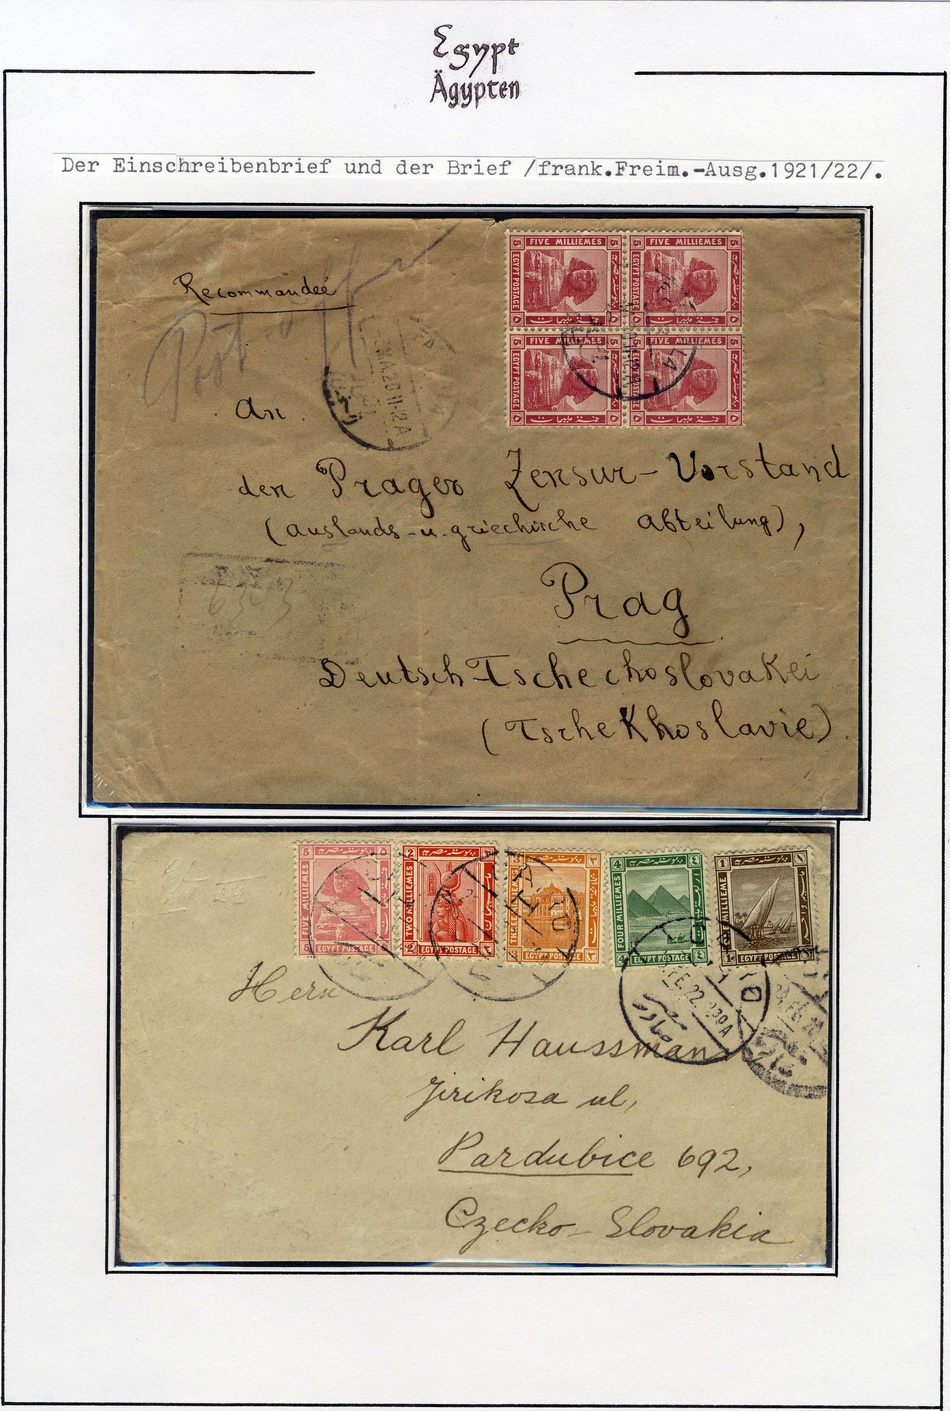 Egypt
Ägypten
Der Einschreibenbrief und der Brief /frank.Freim.-Ausg.1921/22/.
Recommandeé
Post
An
den Prager Zensur-Vorstand
(Auslands-u.griechische Abteilung),
Prag
Deutsch-Tschechoslovakei
(Tschekhoslavie).
FIVE MILLIEMES
EGYPT POSTAGE
5
FIVE MILLIEMES
EGYPT POSTAGE
5
FIVE MILLIEMES
EGYPT POSTAGE
5
FIVE MILLIEMES
EGYPT POSTAGE
5
FIVE MILLIEMES
EGYPT POSTAGE
5
TWO MILLIEMES
EGYPT POSTAGE
2
EGYPT POSTAGE
FOUR MILLIEMES
EGYPT POSTAGE
4
ONE MILLIEME
EGYPT POSTAGE
1
CAIRO
FE.22. 930A
Herrn
Karl Haussman
Jirikosa ul,
Pardubice 692,
Czecko-Slovakia